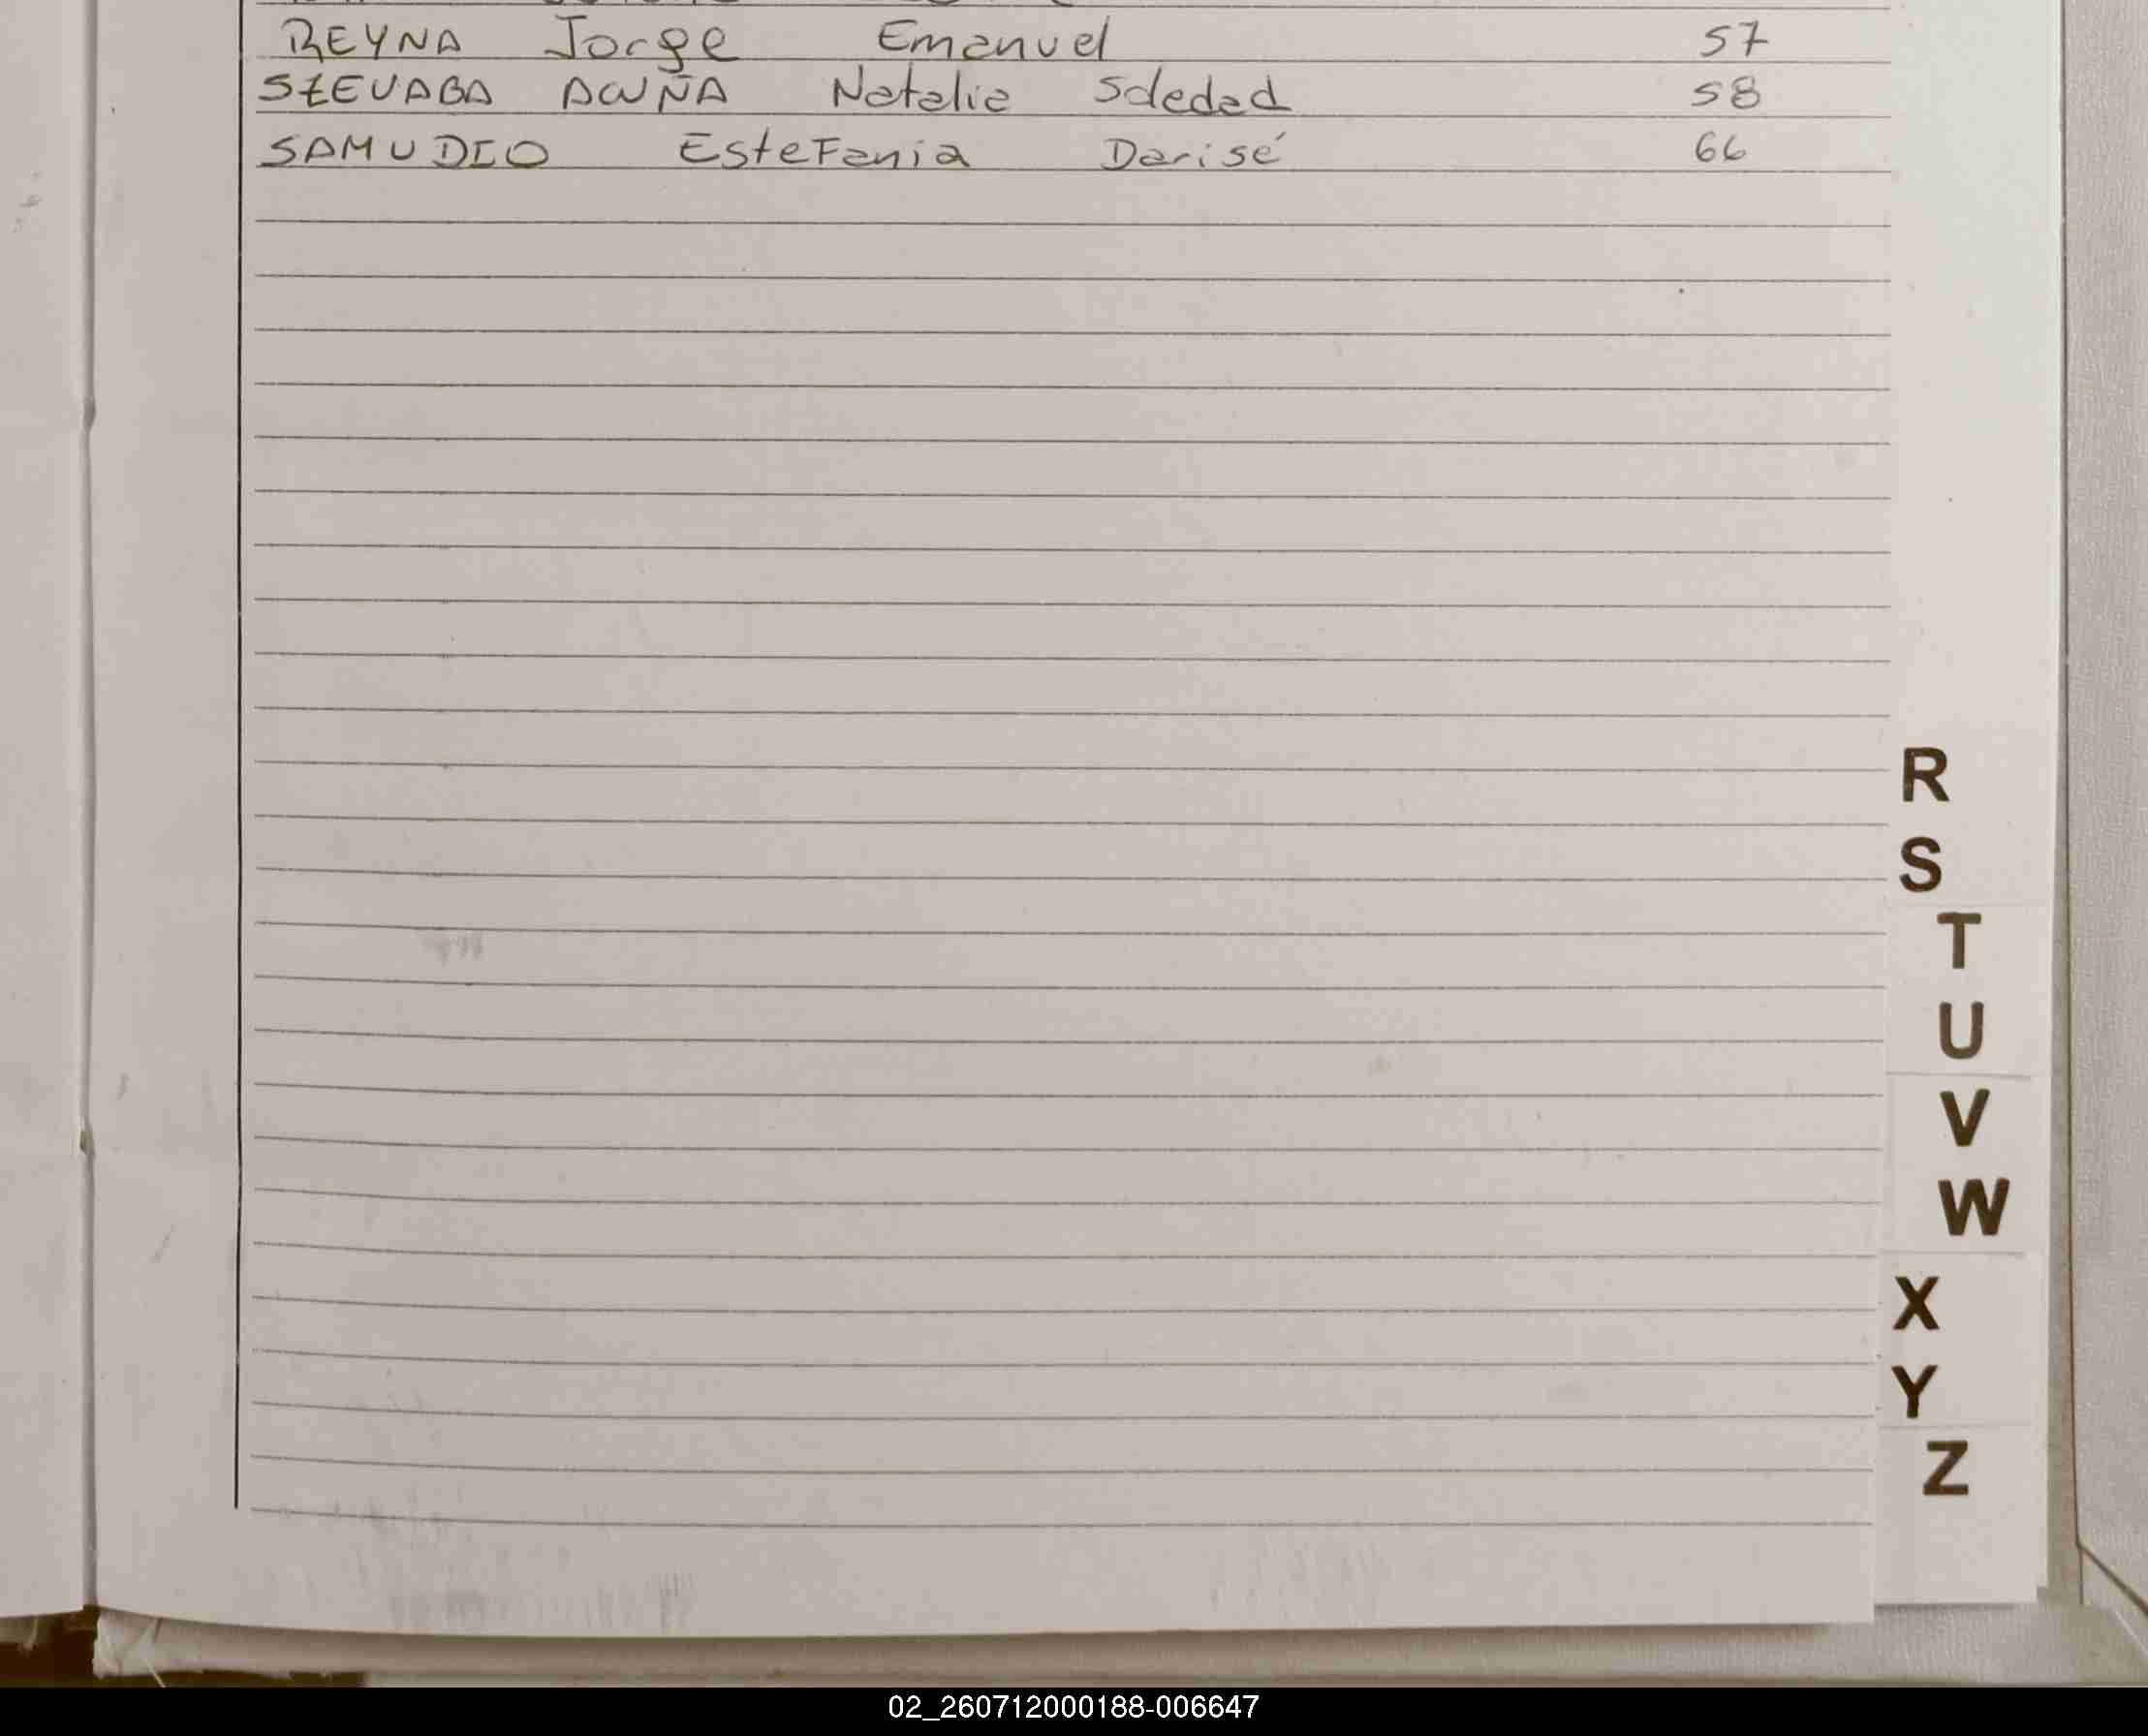 REYNA Jorge Emanuel 57
ACUÑA Natalia Soledad 58
SAMUDIO Estefania Darisé 66
R
S
T
U
V
W
X
Y
Z
02_260712000188-006647